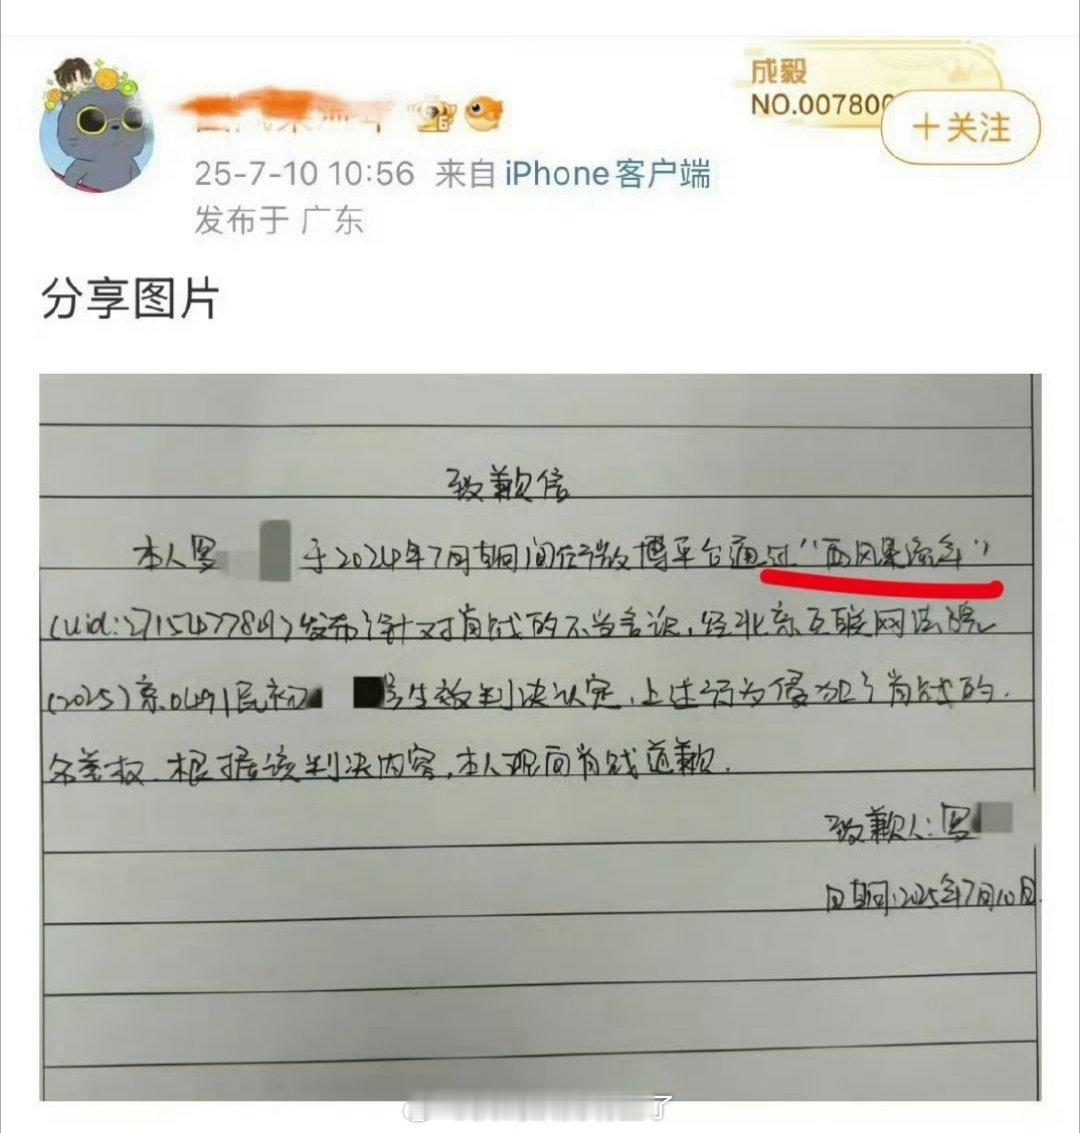 成毅
NO.007800
+关注
25-7-10 10:56 来自 iPhone客户端
发布于 广东
分享图片
致歉信
本人罗 于2024年7月期间在微博平台通过“西风累流年”
(uid:2715477849)发布针对肖战的不当言论,经北京互联网法院
(2025)京0491民初 号生效判决认定,上述行为侵犯了肖战的
名誉权.根据该判决内容,本人现向肖战道歉.
致歉人:罗
日期:2025年7月10日.
了